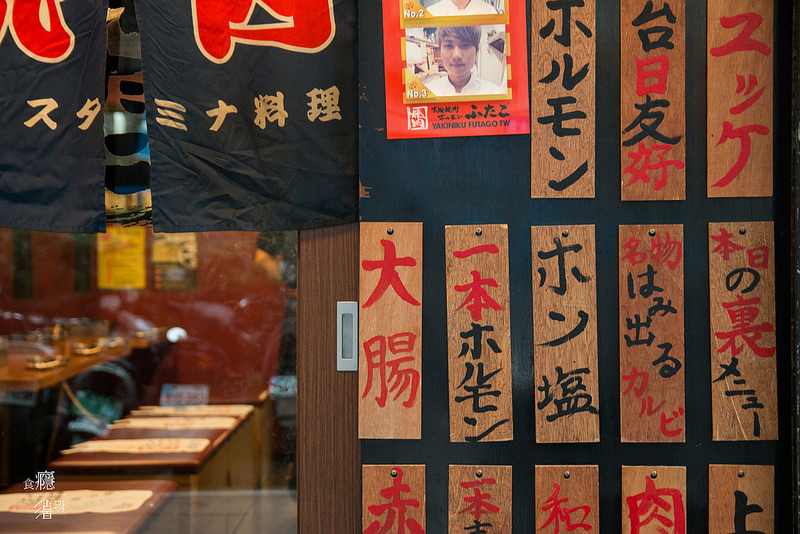 スタミナ料理
No.2
No.3
大阪焼肉
ホルモン ふたご
YAKINIKU FUTAGO TW
ホルモン
台日友好
ユッケ
大腸
一本ホルモン
ホホン塩
名物はみ出るカルビ
本日の裏メニュー
赤
一本
和
肉
上
食癮